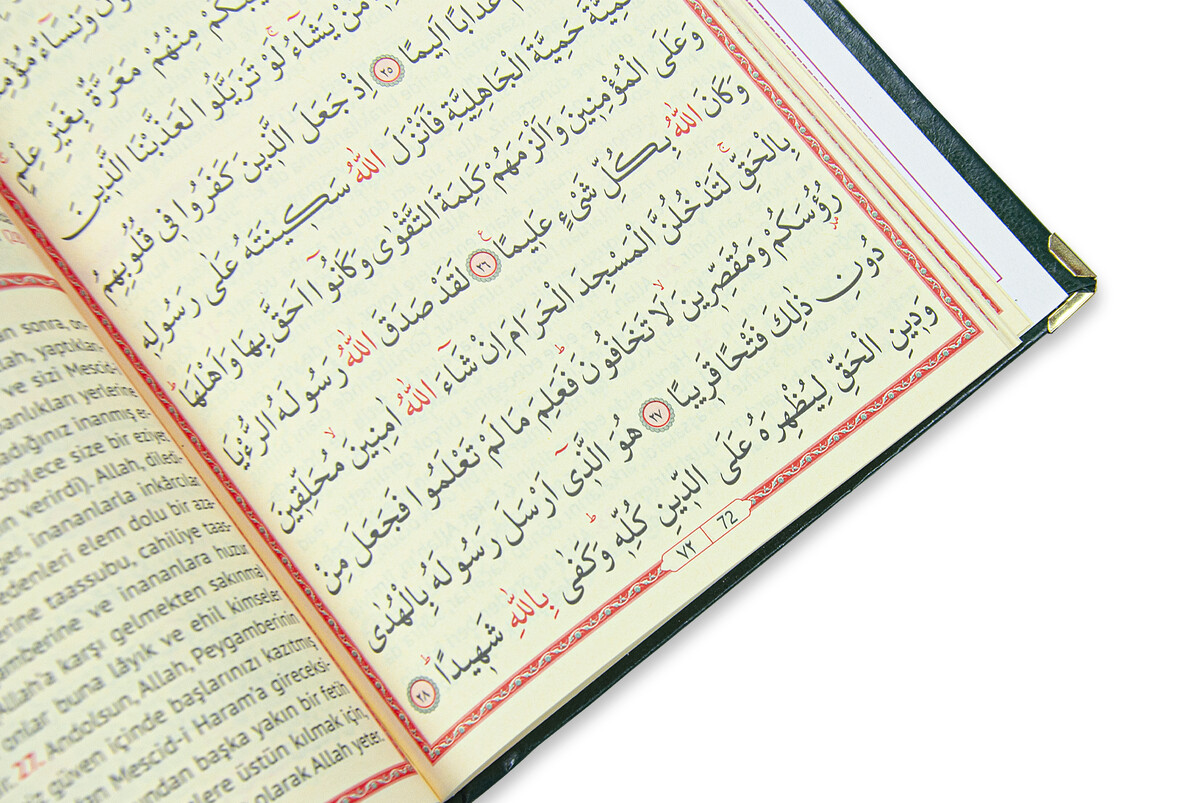 مِنْهُمْ مَعَرَّةٌ بِغَيْرِ عِلْمٍ
مَنْ يَشَٓاءُ لَوْ تَزَيَّلُوا لَعَذَّبْنَا الَّذ۪ينَ
عَذَابًا اَل۪يمًا ﴿٢٥﴾ اِذْ جَعَلَ الَّذ۪ينَ كَفَرُوا ف۪ى قُلُوبِهِمُ
حَمِيَّةَ الْجَاهِلِيَّةِ فَاَنْزَلَ اللّٰهُ سَك۪ينَتَهُ عَلٰى رَسُولِه۪
وَعَلَى الْمُؤْمِن۪ينَ وَاَلْزَمَهُمْ كَلِمَةَ التَّقْوٰى وَكَانُٓوا اَحَقَّ بِهَا وَاَهْلَهَاۜ
وَكَانَ اللّٰهُ بِكُلِّ شَىْءٍ عَل۪يمًا ﴿٢٦﴾ لَقَدْ صَدَقَ اللّٰهُ رَسُولَهُ الرُّءْيَا
بِالْحَقِّۚ لَتَدْخُلُنَّ الْمَسْجِدَ الْحَرَامَ اِنْ شَٓاءَ اللّٰهُ اٰمِن۪ينَۙ مُحَلِّق۪ينَ
رُؤُ۫سَكُمْ وَمُقَصِّر۪ينَۙ لَا تَخَافُونَۜ فَعَلِمَ مَا لَمْ تَعْلَمُوا فَجَعَلَ مِنْ
دُونِ ذٰلِكَ فَتْحًا قَر۪يبًا ﴿٢٧﴾ هُوَ الَّذ۪ٓى اَرْسَلَ رَسُولَهُ بِالْهُدٰى
وَد۪ينِ الْحَقِّ لِيُظْهِرَهُ عَلَى الدّ۪ينِ كُلِّه۪ۜ وَكَفٰى بِاللّٰهِ شَه۪يدًاۜ ﴿٢٨﴾
٧٢ 72
sonra, on
yaptıkları
ve sizi Mescid-i
yerlerine
inanmış er-
böylece size bir eziyet
verirdi). Allah, diledi-
inananlarla inkârcılar
edenleri elem dolu bir aza-
taassubu, cahiliye taas-
ve inananlara huzur
Allah'a karşı gelmekten sakınma
onlar buna lâyık ve ehil kimseler
27. Andolsun, Allah, Peygamberinin
güven içinde başlarınızı kazıtmış
Mescid-i Haram'a gireceksi-
başka yakın bir fetih
üstün kılmak için,
olarak Allah yeter.